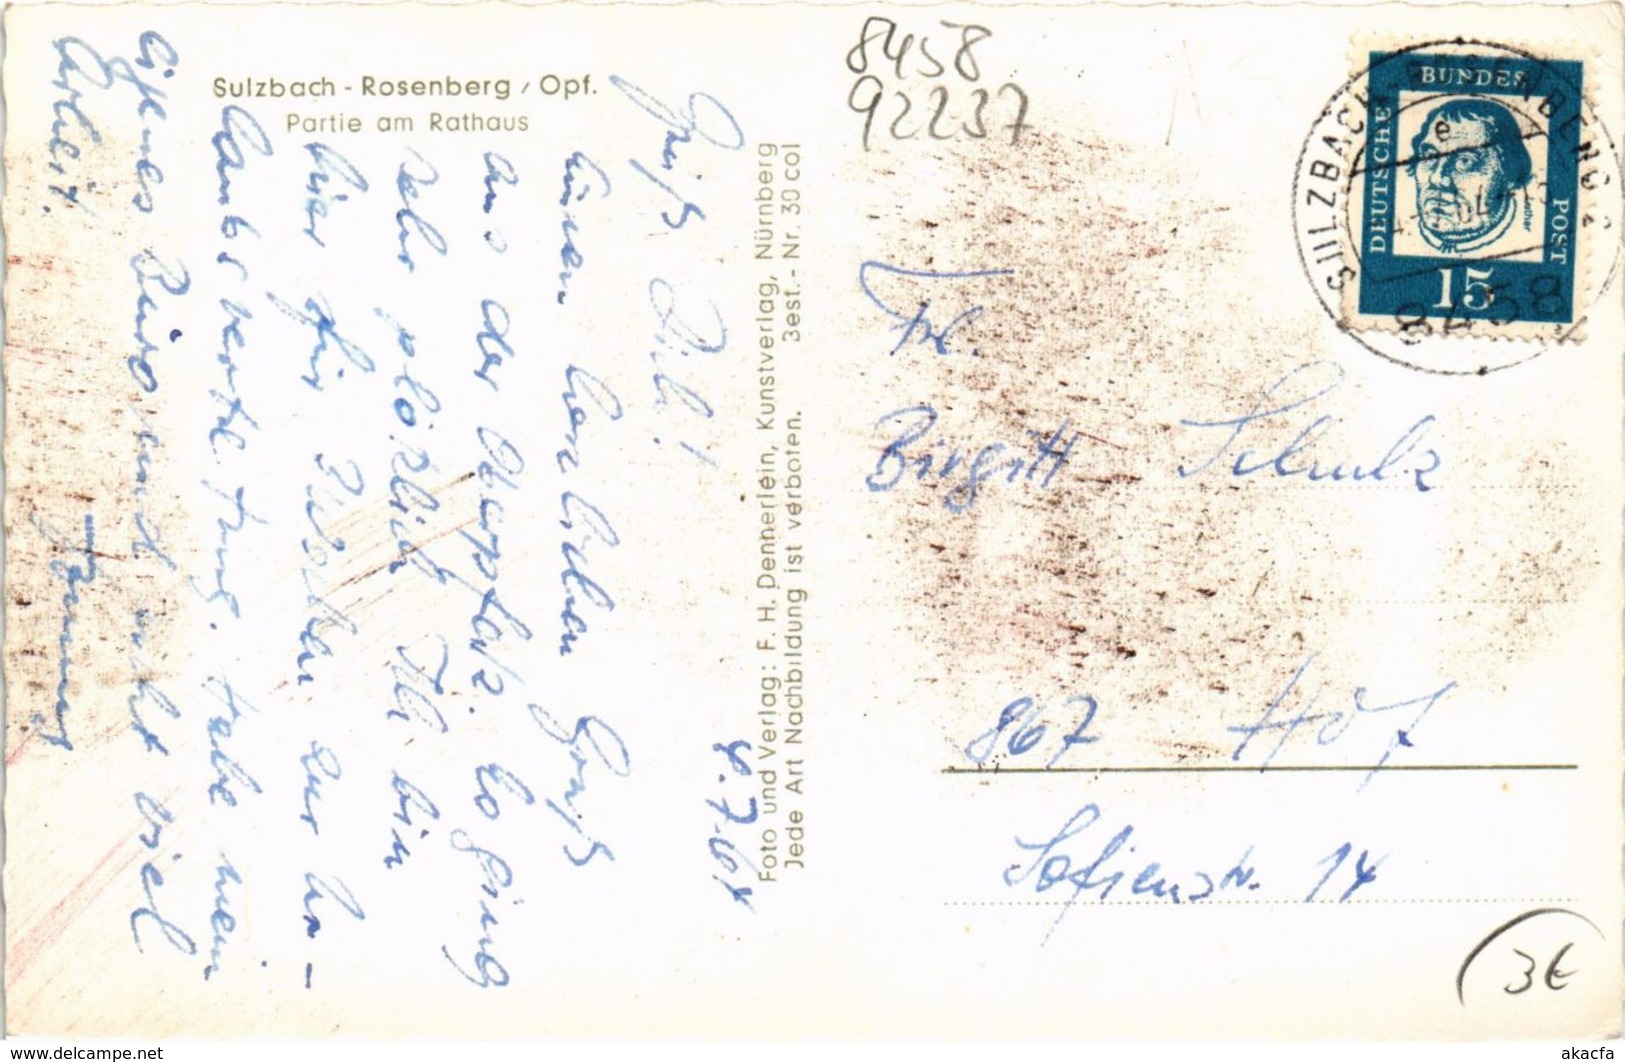 Sulzbach - Rosenberg / Opf.
Partie am Rathaus
4.7.64
Grüß Dich!
Einen herzlichen Gruß
aus der Oberpfalz. Es ging
sehr plötzlich. Ich bin
hier für Wochen zur Ur-
laubsvertretung. Habe mein
eigenes Büro und nicht viel
Arbeit.
Foto und Verlag: F. H. Dennerlein, Kunstverlag, Nürnberg
Jede Art Nachbildung ist verboten. Best. - Nr. 30 col
8458
92237
DEUTSCHE
BUNDES
POST
15
Luther
SULZBACH-ROSENBERG 2
e
8458
Frl.
Birgitt Schulz
867 Hof
Sofienstr. 14
3€
akacfa